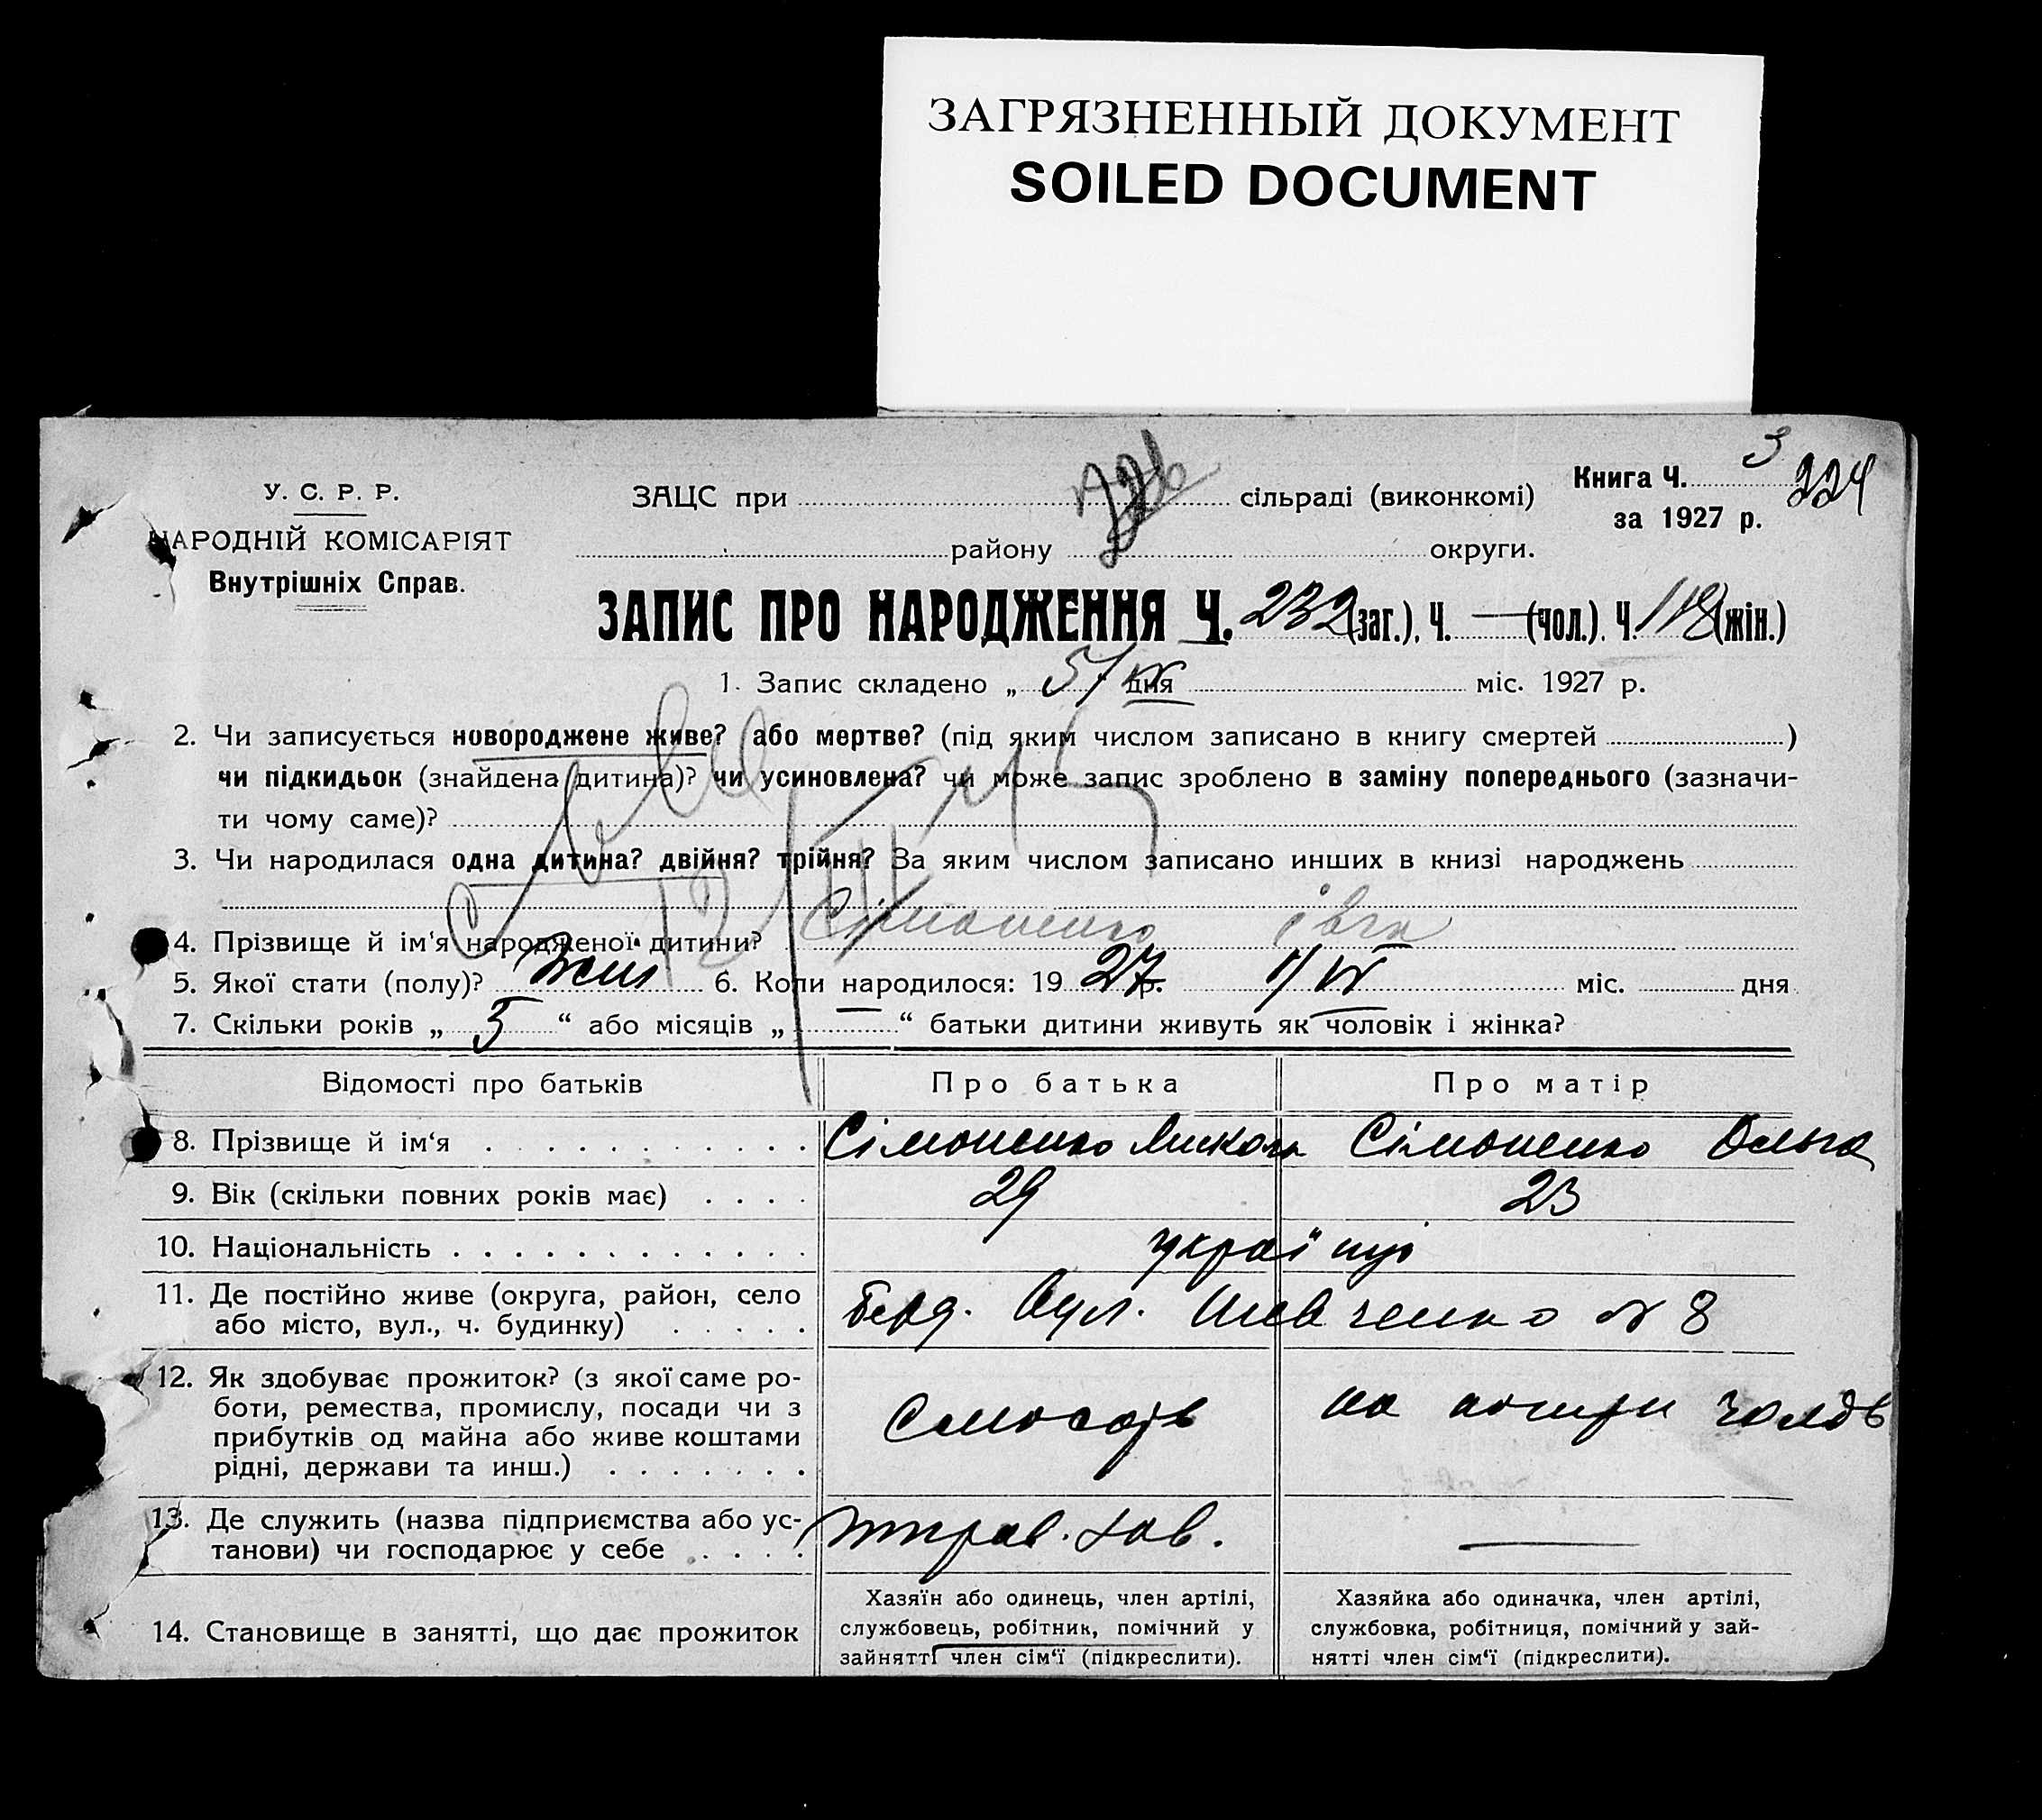 ЗАГРЯЗНЕННЫЙ ДОКУМЕНТ
SOILED DOCUMENT
У. С. Р. Р.
НАРОДНІЙ КОМІСАРІЯТ
Внутрішніх Справ.
ЗАЦС при сільраді (виконкомі)
району округи.
Книга Ч. 3
224
за 1927 р.
ЗАПИС ПРО НАРОДЖЕННЯ Ч. 232 (заг.). Ч. — (чол.). Ч. 118 (жін.)
1. Запис складено „ 5/VI дня міс. 1927 р.
2. Чи записується новороджене живе? або мертве? (під яким числом записано в книгу смертей )
чи підкидьок (знайдена дитина)? чи усиновлена? чи може запис зроблено в заміну попереднього (зазначи-
ти чому саме)?
3. Чи народилася одна дитина? двійня? трійня? За яким числом записано инших в книзі народжень
4. Прізвище й ім‘я народженої дитини? Сімоненко Івга
5. Якої стати (полу)? Жін 6. Коли народилося: 1927 р. 1/VI міс. дня
7. Скільки років „ 5 “ або місяців „ — “ батьки дитини живуть як чоловік і жінка?
Відомості про батьків
Про батька
Про матір
8. Прізвище й ім‘я Сімоненко Микола Сімоненко Ольга
9. Вік (скільки повних років має) 29 23
10. Національність українці
11. Де постійно живе (округа, район, село
або місто, вул., ч. будинку)
Берд. Вул. Шевченко № 8
12. Як здобуває прожиток? (з якої саме ро-
боти, ремества, промислу, посади чи з
прибутків од майна або живе коштами
рідні, держави та инш.)
на чолов
13. Де служить (назва підприємства або ус-
танови) чи господарює у себе
—
14. Становище в занятті, що дає прожиток
Хазяїн або одинець, член артілі,
службовець, робітник, помічний у
зайнятті член сім‘ї (підкреслити).
Хазяйка або одиначка, член артілі,
службовка, робітниця, помічний у зай-
нятті член сім‘ї (підкреслити).